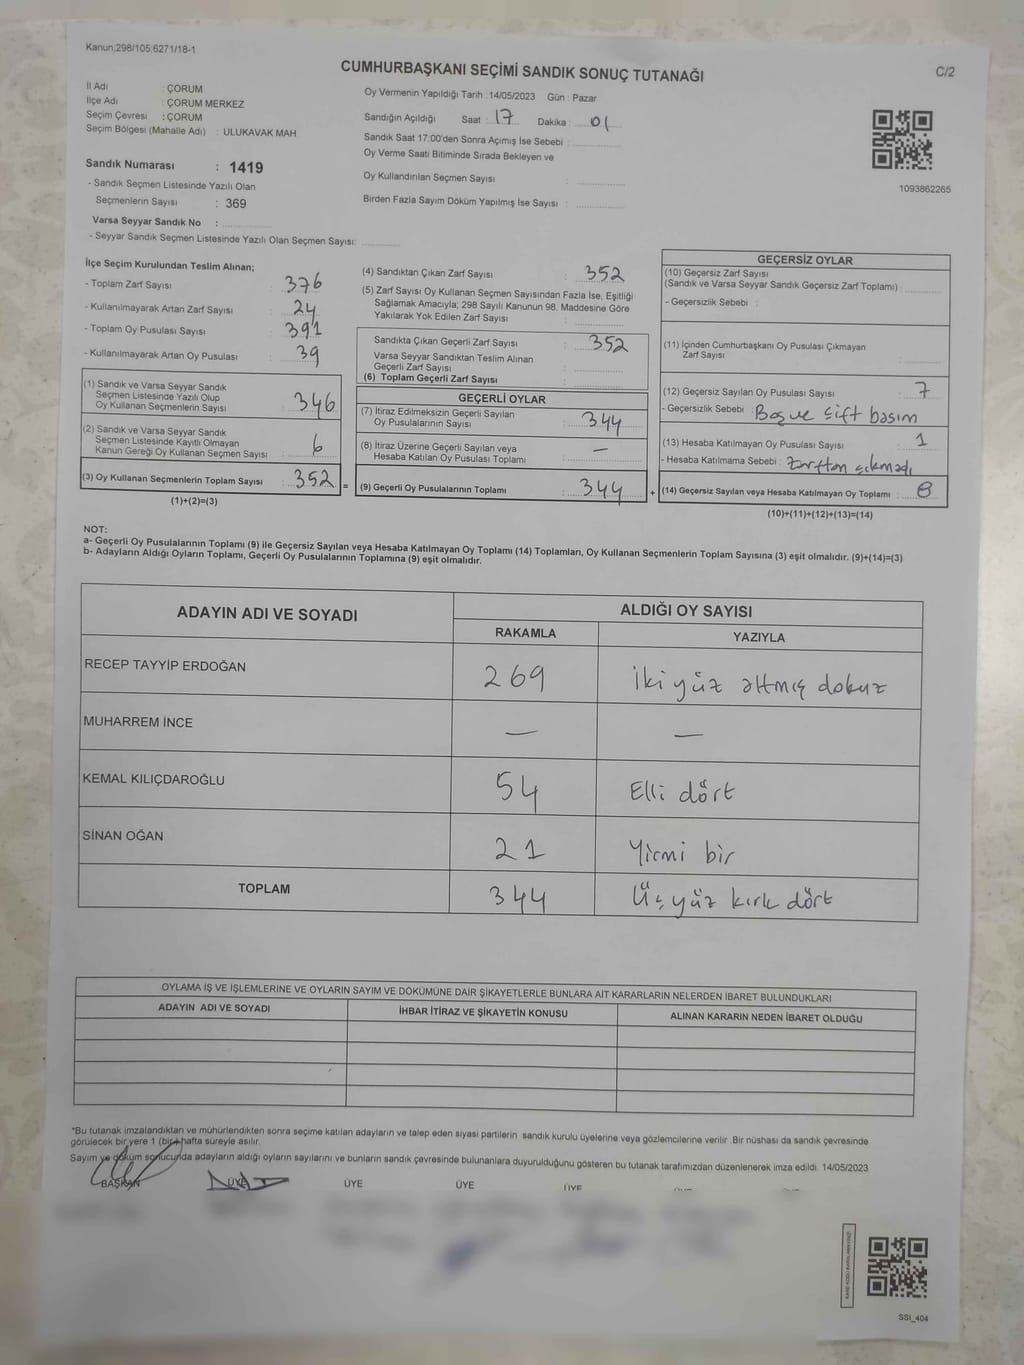 Kanun:298/105:6271/18-1
CUMHURBAŞKANI SEÇİMİ SANDIK SONUÇ TUTANAĞI
C/2
İl Adı : ÇORUM
İlçe Adı : ÇORUM MERKEZ
Seçim Çevresi : ÇORUM
Seçim Bölgesi (Mahalle Adı) : ULUKAVAK MAH
Sandık Numarası : 1419
- Sandık Seçmen Listesinde Yazılı Olan
Seçmenlerin Sayısı : 369
Varsa Seyyar Sandık No :
- Seyyar Sandık Seçmen Listesinde Yazılı Olan Seçmen Sayısı:
Oy Vermenin Yapıldığı Tarih : 14/05/2023 Gün : Pazar
Sandığın Açıldığı Saat : 17 Dakika : 01
Sandık Saat 17:00'den Sonra Açımış İse Sebebi :
Oy Verme Saati Bitiminde Sırada Bekleyen ve
Oy Kullandırılan Seçmen Sayısı :
Birden Fazla Sayım Döküm Yapılmış İse Sayısı :
1093862265
İlçe Seçim Kurulundan Teslim Alınan;
- Toplam Zarf Sayısı : 376
- Kullanılmayarak Artan Zarf Sayısı : 24
- Toplam Oy Pusulası Sayısı : 391
- Kullanılmayarak Artan Oy Pusulası : 39
(1) Sandık ve Varsa Seyyar Sandık
Seçmen Listesinde Yazılı Olup
Oy Kullanan Seçmenlerin Sayısı : 346
(2) Sandık ve Varsa Seyyar Sandık
Seçmen Listesinde Kayıtlı Olmayan
Kanun Gereği Oy Kullanan Seçmen Sayısı : 6
(3) Oy Kullanan Seçmenlerin Toplam Sayısı : 352 =
(1)+(2)=(3)
(4) Sandıktan Çıkan Zarf Sayısı : 352
(5) Zarf Sayısı Oy Kullanan Seçmen Sayısından Fazla İse, Eşitliği
Sağlamak Amacıyla; 298 Sayılı Kanunun 98. Maddesine Göre
Yakılarak Yok Edilen Zarf Sayısı :
Sandıkta Çıkan Geçerli Zarf Sayısı : 352
Varsa Seyyar Sandıktan Teslim Alınan
Geçerli Zarf Sayısı :
(6) Toplam Geçerli Zarf Sayısı :
GEÇERLİ OYLAR
(7) İtiraz Edilmeksizin Geçerli Sayılan
Oy Pusulalarının Sayısı : 344
(8) İtiraz Üzerine Geçerli Sayılan veya
Hesaba Katılan Oy Pusulası Toplamı : —
(9) Geçerli Oy Pusulalarının Toplamı : 344 +
GEÇERSİZ OYLAR
(10) Geçersiz Zarf Sayısı
(Sandık ve Varsa Seyyar Sandık Geçersiz Zarf Toplamı) :
- Geçersizlik Sebebi :
(11) İçinden Cumhurbaşkanı Oy Pusulası Çıkmayan
Zarf Sayısı :
(12) Geçersiz Sayılan Oy Pusulası Sayısı : 7
- Geçersizlik Sebebi : Boş ve Çift basım
(13) Hesaba Katılmayan Oy Pusulası Sayısı : 1
- Hesaba Katılmama Sebebi : Zarftan çıkmadı
(14) Geçersiz Sayılan veya Hesaba Katılmayan Oy Toplamı : 8
(10)+(11)+(12)+(13)=(14)
NOT:
a- Geçerli Oy Pusulalarının Toplamı (9) ile Geçersiz Sayılan veya Hesaba Katılmayan Oy Toplamı (14) Toplamları, Oy Kullanan Seçmenlerin Toplam Sayısına (3) eşit olmalıdır. (9)+(14)=(3)
b- Adayların Aldığı Oyların Toplamı, Geçerli Oy Pusulalarının Toplamına (9) eşit olmalıdır.
ADAYIN ADI VE SOYADI ALDIĞI OY SAYISI
RAKAMLA YAZIYLA
RECEP TAYYİP ERDOĞAN 269 İki yüz altmış dokuz
MUHARREM İNCE — —
KEMAL KILIÇDAROĞLU 54 Elli dört
SİNAN OĞAN 21 Yirmi bir
TOPLAM 344 Üç yüz kırk dört
OYLAMA İŞ VE İŞLEMLERİNE VE OYLARIN SAYIM VE DÖKÜMÜNE DAİR ŞİKAYETLERLE BUNLARA AİT KARARLARIN NELERDEN İBARET BULUNDUKLARI
ADAYIN ADI VE SOYADI İHBAR İTİRAZ VE ŞİKAYETİN KONUSU ALINAN KARARIN NEDEN İBARET OLDUĞU
*Bu tutanak imzalandıktan ve mühürlendikten sonra seçime katılan adayların ve talep eden siyasi partilerin sandık kurulu üyelerine veya gözlemcilerine verilir .Bir nüshası da sandık çevresinde
görülecek bir yere 1 (bir) hafta süreyle asılır.
Sayım ve döküm sonucunda adayların aldığı oyların sayılarını ve bunların sandık çevresinde bulunanlara duyurulduğunu gösteren bu tutanak tarafımızdan düzenlenerek imza edildi. 14/05/2023
BAŞKAN ÜYE ÜYE ÜYE ÜYE
SSI_404